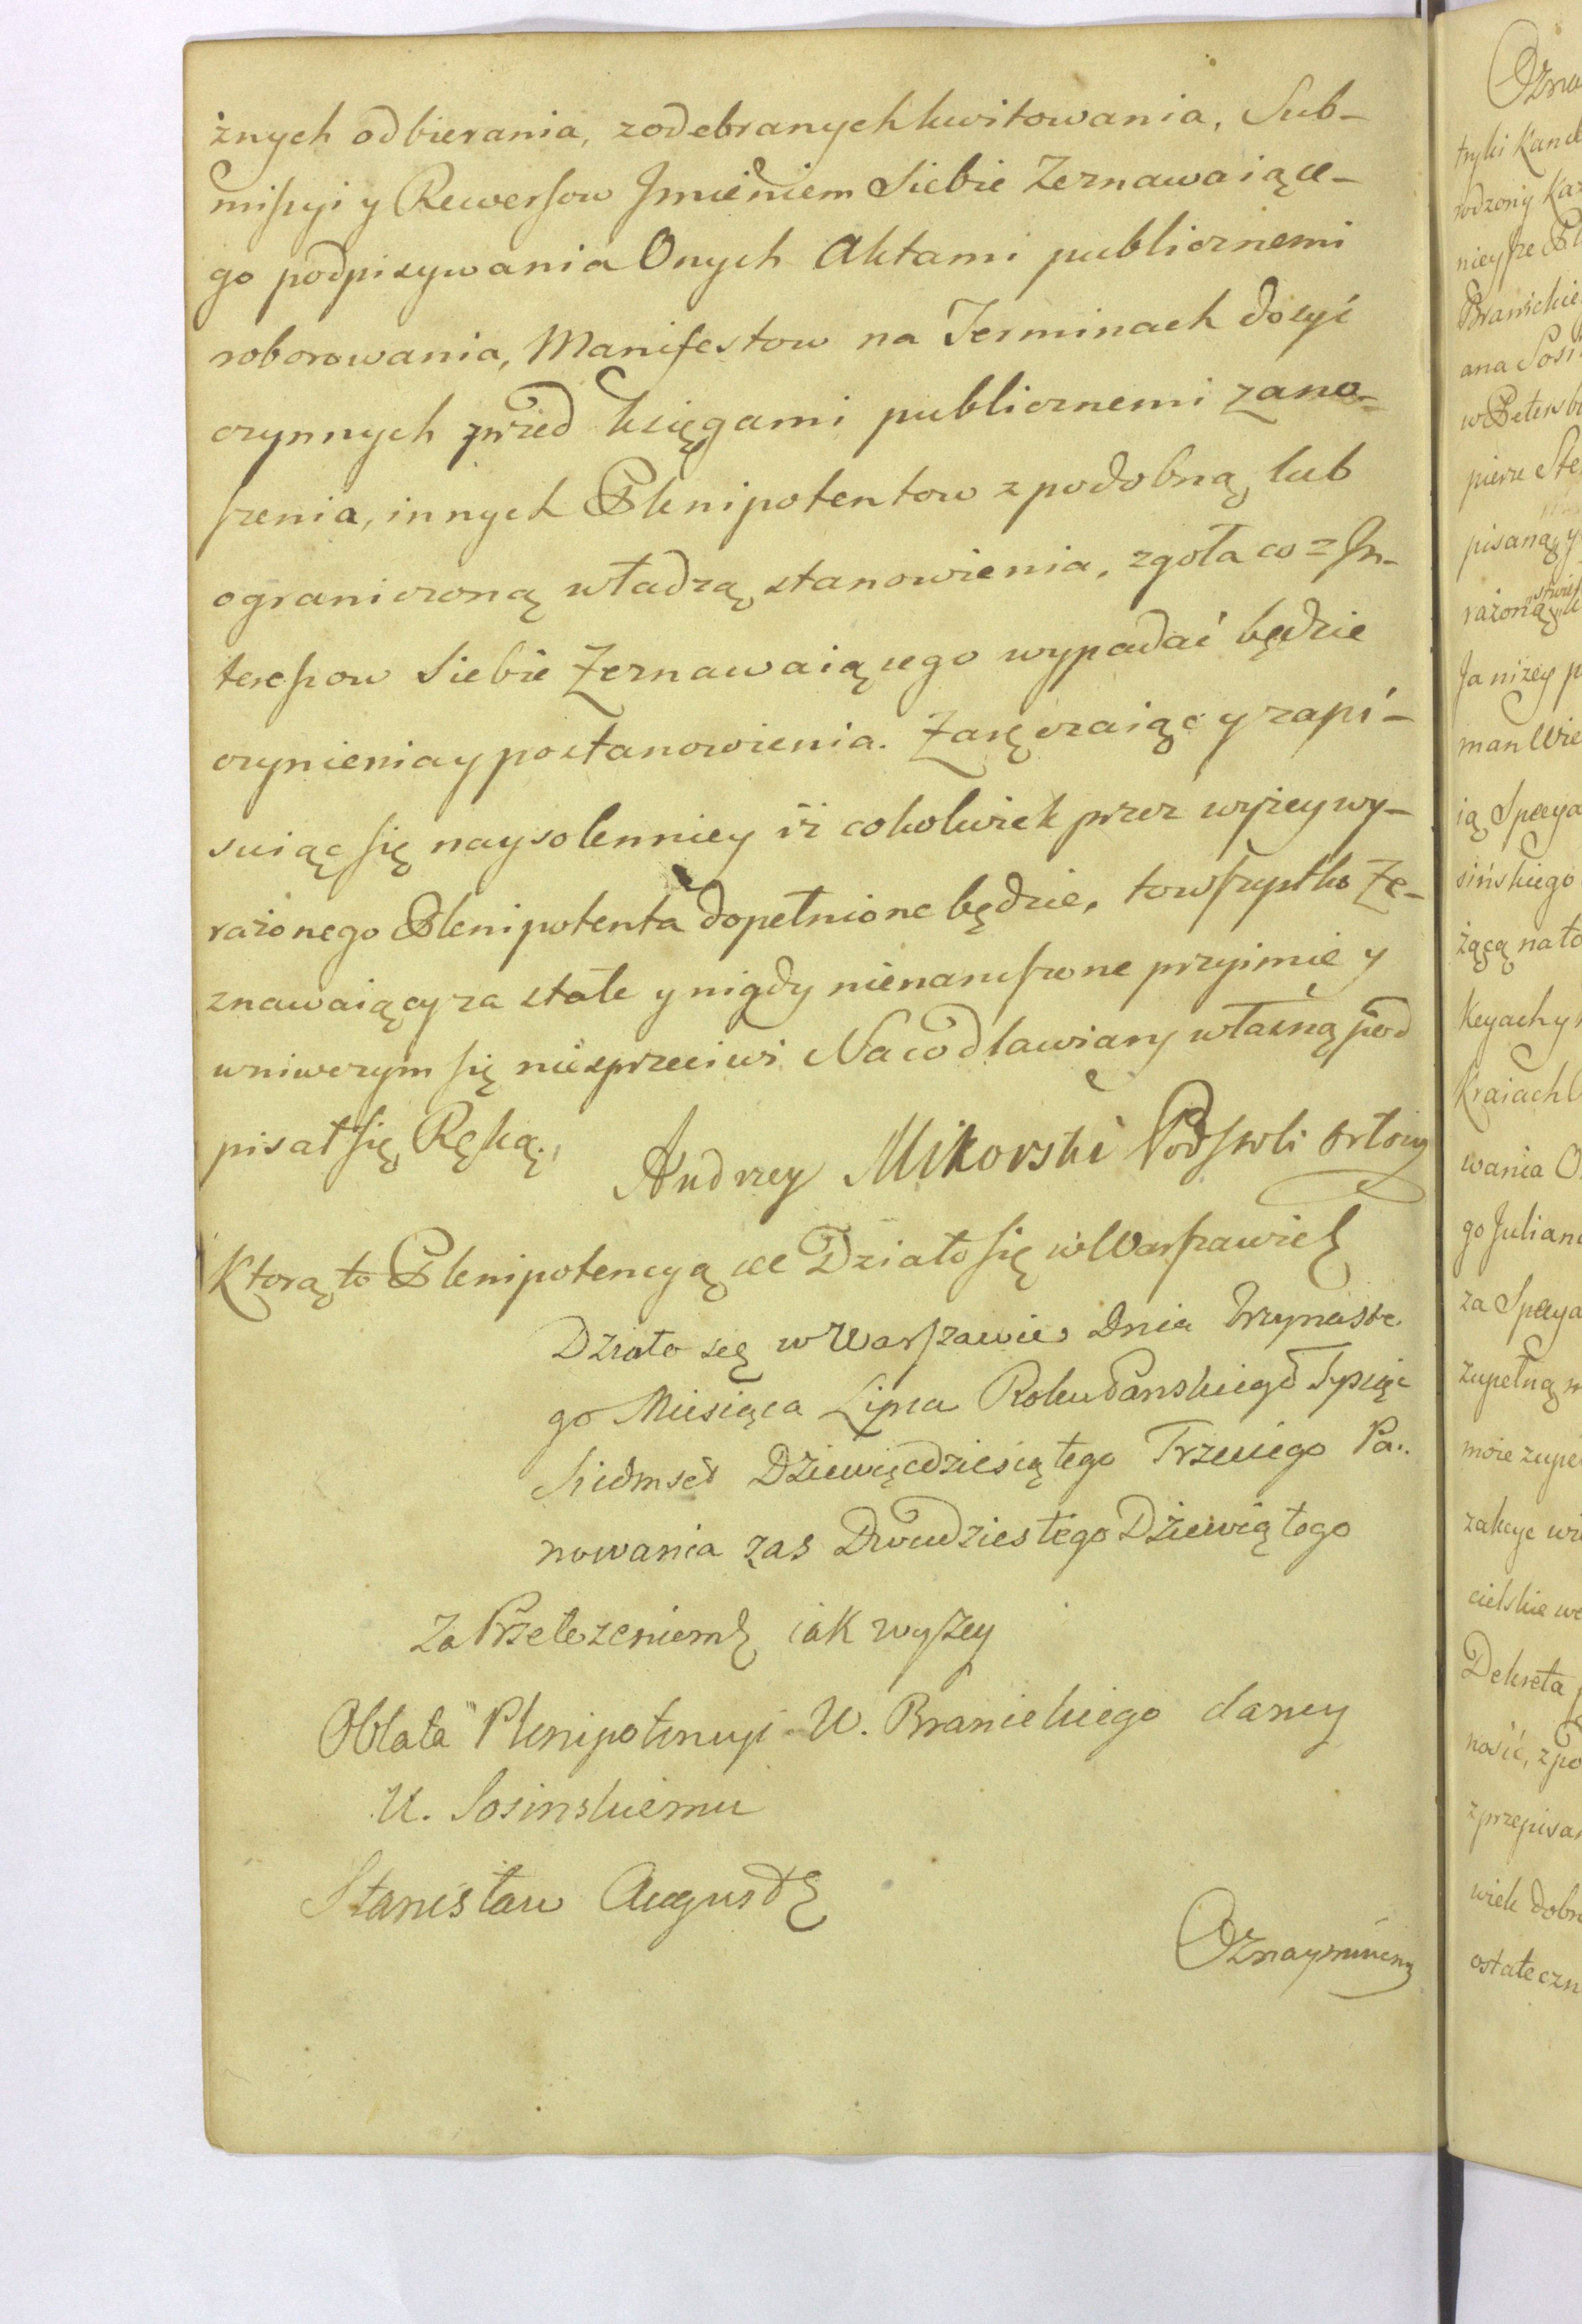 żnych odbierania, z odebranych kwitowania, Sub-
missyi y Rewersow Jmieniem Siebie Zeznawaiące-
go podpisywania Onych Aktami publicznemi
roborowania, Manifestow na Terminach dosyć
czynnych przed księgami publicznemi zano-
szenia, innych Plenipotentow z podobną lub
ograniczoną władzą stanowienia, zgoła co z Jn-
teressow Siebie Zeznawaiącego wypadać będzie
czynienia y postanowienia. Zaręczaiąc y zapi-
suiąc się naysolenniey iż cokolwiek przez wyżey wy-
rażonego Plenipotenta dopełnione będzie, to wszystko Ze-
znawaiący za stałe y nigdy nienaruszone przyimie y
w niwczym się niesprzeciwi. Na co dla wiary własną pod
pisał się Ręką.
Andrzey Mikorski Podstoli
Ktorą to Plenipotencyą etc Działo się w Warszawie etc
Działo się w Warszawie Dnia Trzynaste
go Miesiąca Lipca Roku Panskiego Tysiąc
Siedmset Dziewięcdziesiątego Trzeciego Pa..
nowania zas Dwudziestego Dziewiątego
Za Przełożeniem etc iak wyszey
Oblata Plenipotencyi U. Branickiego daney
U. Sosinskiemu
Stanisław August etc
Oznaymuiemy
Ozna
tryki Kan
rodzony Ka
nieysze Pl
Branickie
ana Sosi
w Petersb
pierze Ste
pisaną y
rażoną
Ja niżey p
man Wie
ią Specya
sińskiego
żącą na to
Kraiach
wania O
go Julian
za Specya
zupełną
może zupe
cielskie
Dekreta
ność, z po
z przepisa
wiek dobr
ostateczn